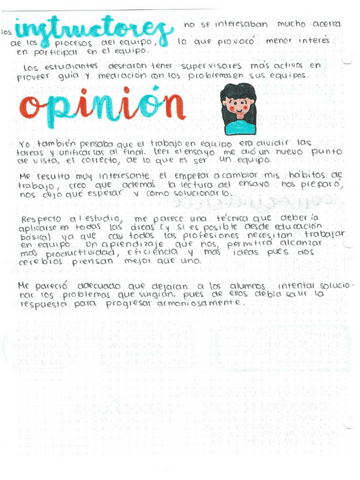 los instructores no se interesaban mucho acerca
de los procesos del equipo, lo que provocó menor interés
en participar en el equipo.
Los estudiantes desearon tener supervisores más activos en
proveer guía y mediación con los problemas en sus equipos.
opinión
Yo también pensaba que el trabajo en equipo era dividir las
tareas y unificarlas al final. leer el ensayo me dió un nuevo punto
de visto, el correcto, de lo que es ser un equipo.
Me resulto muy interesante, el empezar a cambiar mis hábitos de
trabajo, creo que además la lectura del ensayo nos preparó,
nos dijo qué esperar y como solucionarlo.
Respecto al estudio, me parece una técnica que debería
aplicarse en todas las áreas (y si es posible desde educación
básica) ya que casi todas las profesiones necesitan trabajar
en equipo. Un aprendizaje que nos, permitirá alcanzar
más productividad, eficiencia y más ideas pues dos
cerebros piensan mejor que uno.
Me pareció adecuado que dejaran a los alumnos intentar solucio-
nar los problemas que surgían, pues de ellos debía salir la
respuesta para progresar armoniosamente.